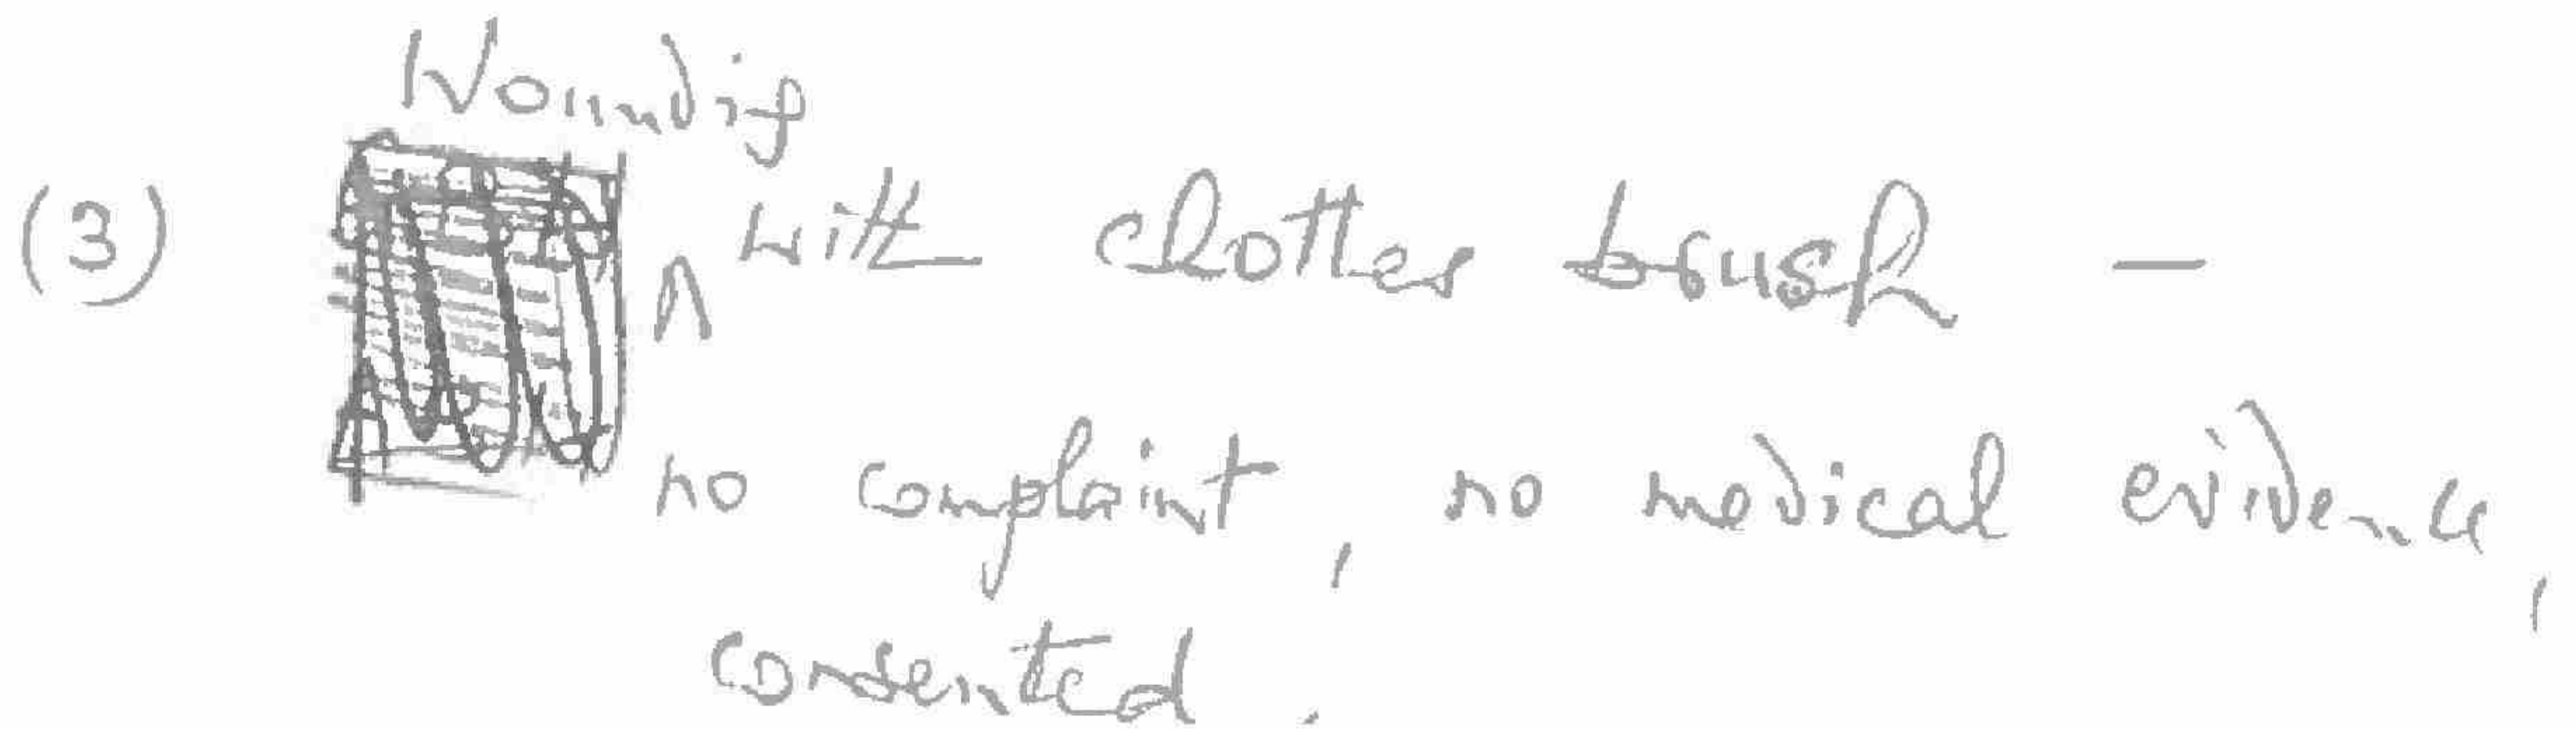 Wounding
(3) ^ with clothes brush —
no complaint, no medical evidence,
consented.